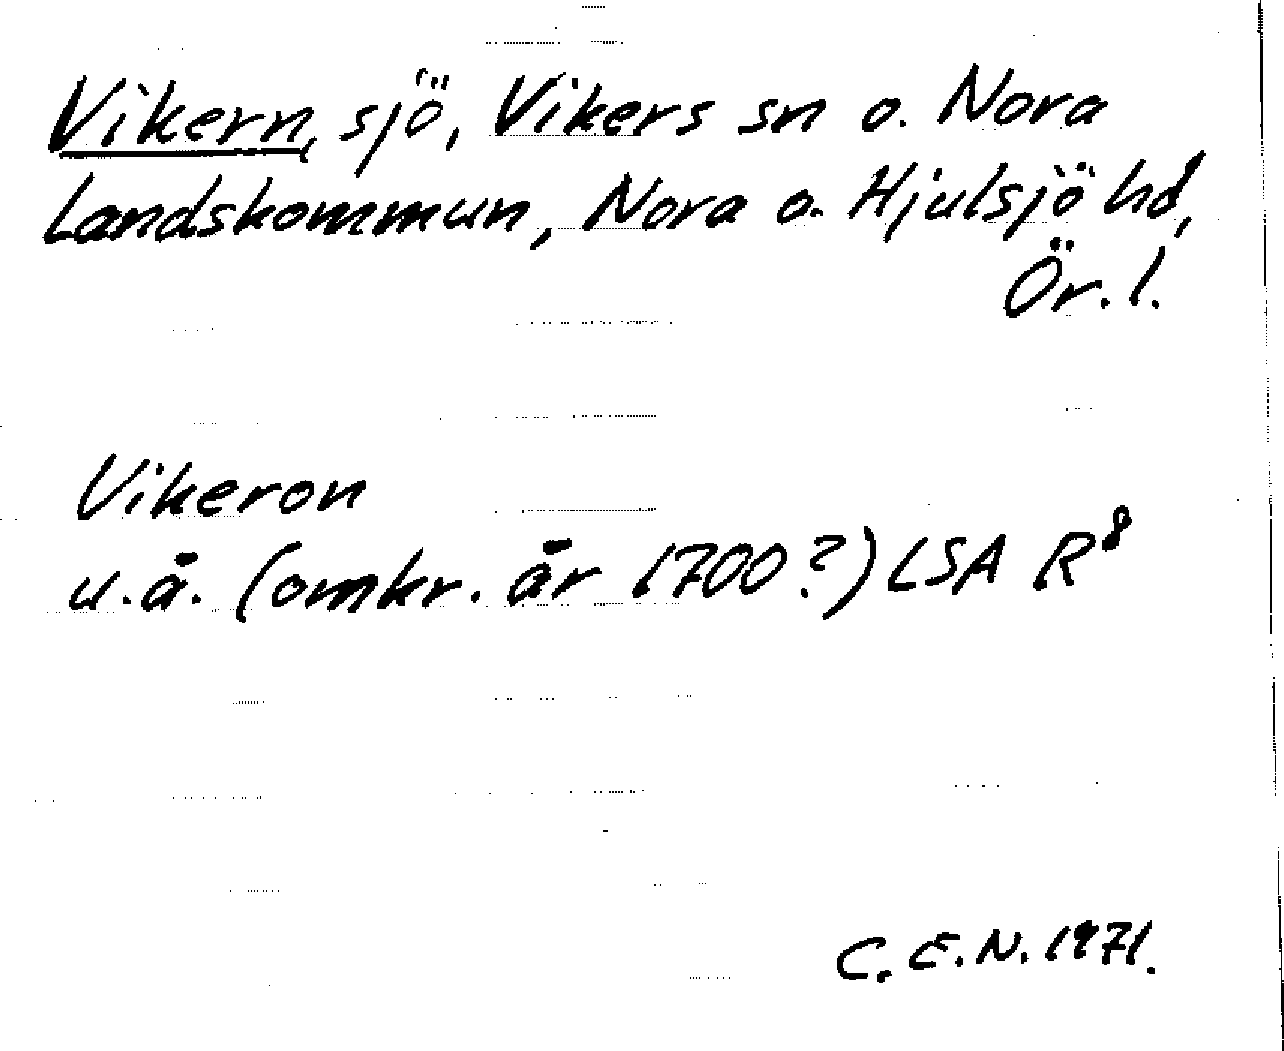 Vikern, sjö, Vikers sn o. Nora
Landskommun, Nora o. Hjulsjö hd,
Ör. l.
Vikeron
u.å. (omkr. år 1700?) LSA R⁸
C. E. N. 1971.